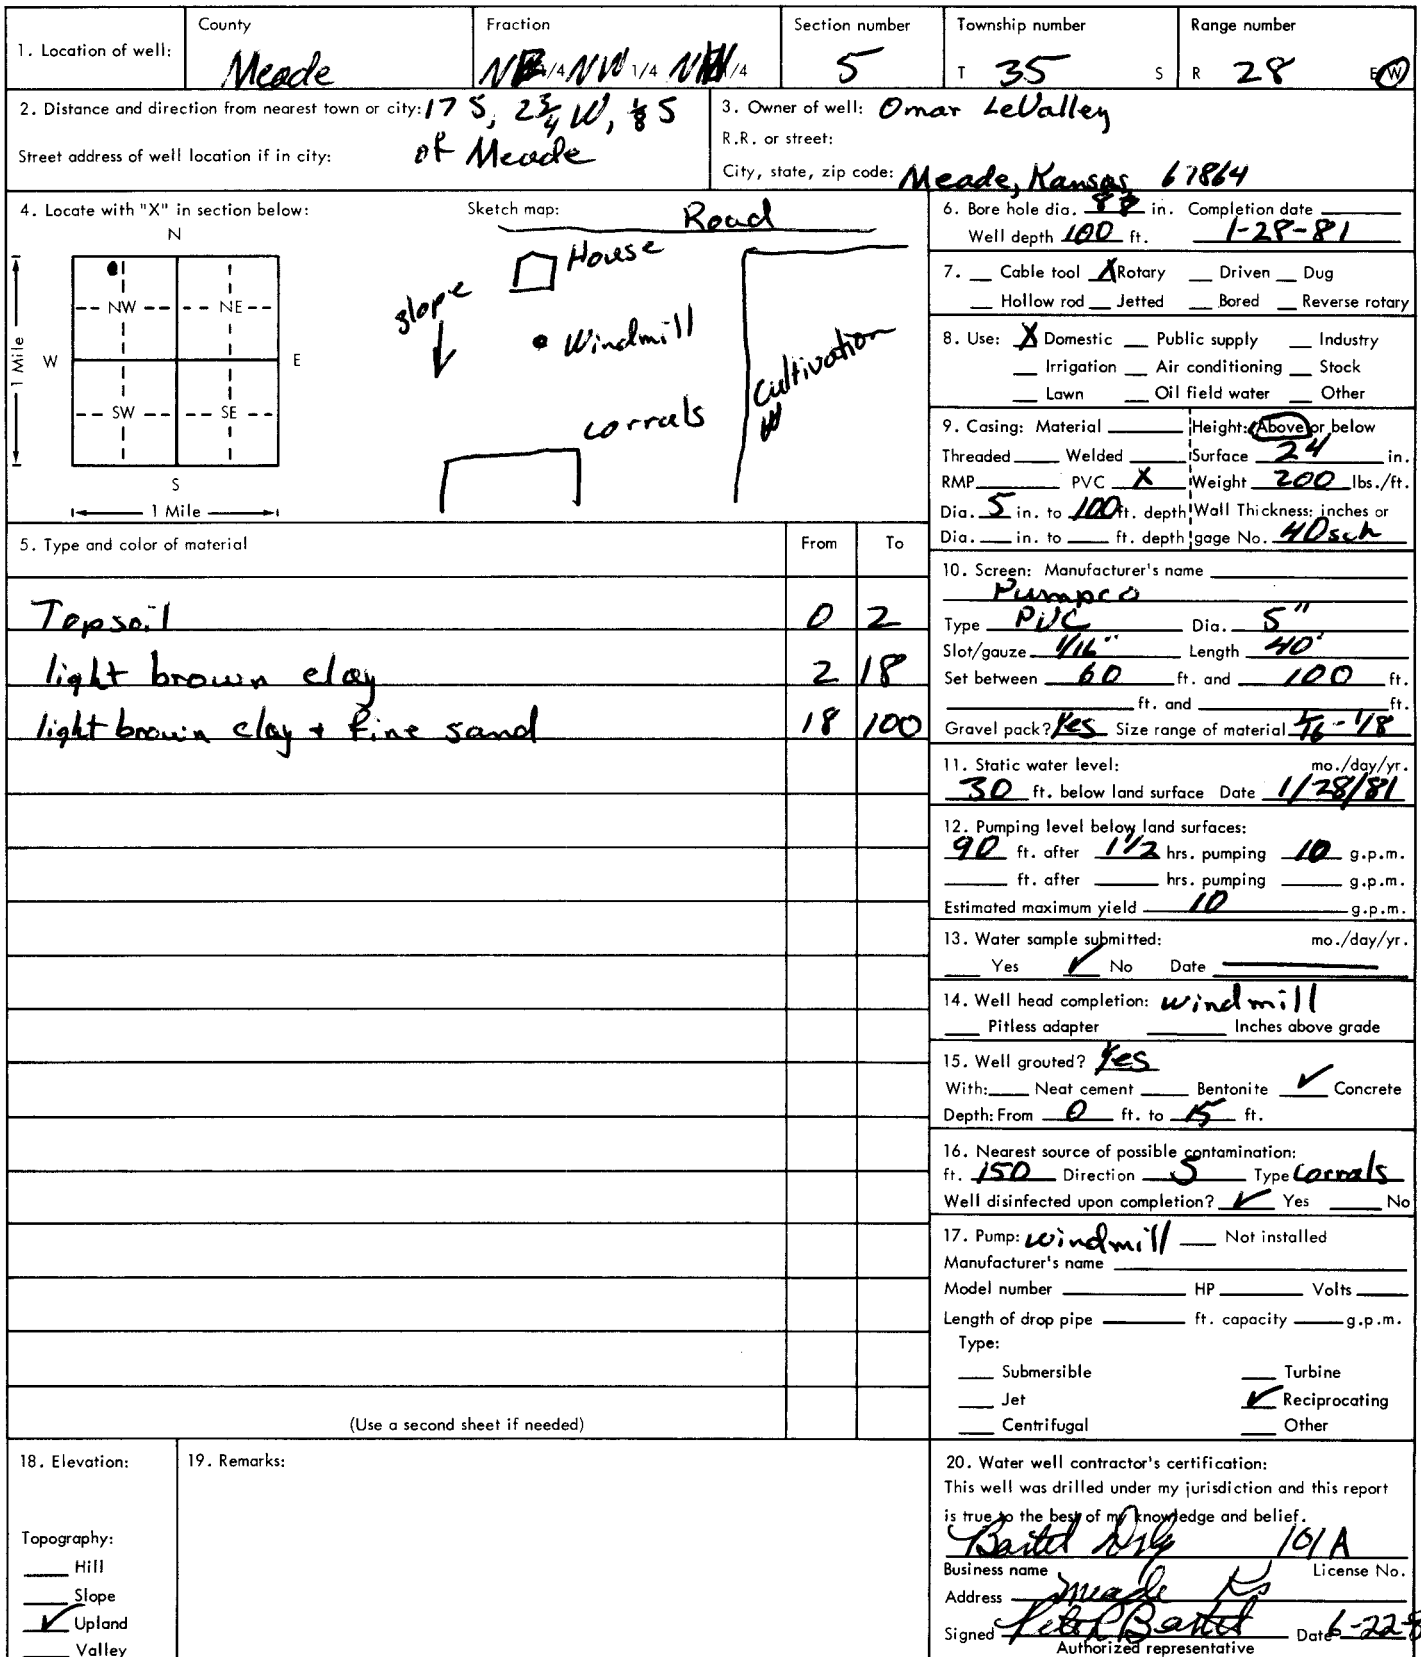 1. Location of well:
County
Meade
Fraction
1/4 NW 1/4 1/4
Section number
5
Township number
T 35 S
Range number
R 28 E W
2. Distance and direction from nearest town or city: 17 S, 2 3/4 W, 1/8 S
Street address of well location if in city: of Meade
3. Owner of well: Omar LeValley
R.R. or street:
City, state, zip code: Meade, Kansas 67864
4. Locate with "X" in section below:
N
NW NE
W E
SW SE
S
1 Mile
1 Mile
Sketch map:
Road
House
slope
Windmill
Cultivation
corrals
6. Bore hole dia. in. Completion date
Well depth 100 ft. 1-28-81
7. Cable tool X Rotary Driven Dug
Hollow rod Jetted Bored Reverse rotary
8. Use: X Domestic Public supply Industry
Irrigation Air conditioning Stock
Lawn Oil field water Other
9. Casing: Material Height: Above or below
Threaded Welded Surface 24 in.
RMP PVC X Weight 200 lbs./ft.
Dia. 5 in. to 100 ft. depth Wall Thickness: inches or
Dia. in. to ft. depth gage No. 40 sch
5. Type and color of material From To
Topsoil 0 2
light brown clay 2 18
light brown clay + fine sand 18 100
(Use a second sheet if needed)
10. Screen: Manufacturer's name
Pumpco
Type PVC Dia. 5"
Slot/gauze 1/16" Length 40'
Set between 60 ft. and 100 ft.
ft. and ft.
Gravel pack? Yes Size range of material 1/16 - 1/8
11. Static water level: mo./day/yr.
30 ft. below land surface Date 1/28/81
12. Pumping level below land surfaces:
90 ft. after 1 1/2 hrs. pumping 10 g.p.m.
ft. after hrs. pumping g.p.m.
Estimated maximum yield 10 g.p.m.
13. Water sample submitted: mo./day/yr.
Yes ✓ No Date
14. Well head completion: windmill
Pitless adapter Inches above grade
15. Well grouted? Yes
With: Neat cement Bentonite ✓ Concrete
Depth: From 0 ft. to 15 ft.
16. Nearest source of possible contamination:
ft. 150 Direction S Type Corrals
Well disinfected upon completion? ✓ Yes No
17. Pump: windmill Not installed
Manufacturer's name
Model number HP Volts
Length of drop pipe ft. capacity g.p.m.
Type:
Submersible Turbine
Jet ✓ Reciprocating
Centrifugal Other
18. Elevation:
Topography:
Hill
Slope
✓ Upland
Valley
19. Remarks:
20. Water well contractor's certification:
This well was drilled under my jurisdiction and this report
is true to the best of my knowledge and belief.
Bartel Drlg 101A
Business name License No.
Address Meade Ks
Signed Bartel Date 6-22-8
Authorized representative